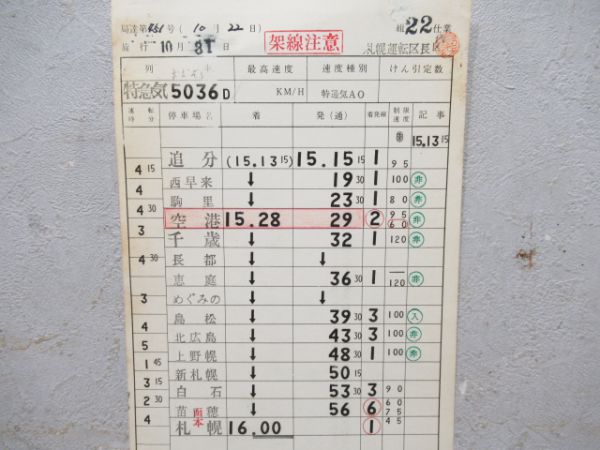 局達第431号 (10月22日) 組22仕業
施行10月8日 架線注意 札幌運転区長
列 最高速度 速度種別 けん引定数
特急気5036D KM/H 特通気AO
運転時分 停車場名 着 発(通) 着発線 制限速度 記事
15.13 15
追分 (15.13 15) 15.15 15 1 95
4 15
西早来 ↓ 19 30 1 100 非
4
駒里 ↓ 23 30 1 80 非
4 30
空港 15.28 29 2 95 60 非
3
千歳 ↓ 32 1 120 非
長都 ↓ ↓
4 30
恵庭 ↓ 36 30 1 120 非
めぐみの ↓ ↓
3
島松 ↓ 39 30 3 100 入
4
北広島 ↓ 43 30 3 100 非
5
上野幌 ↓ 48 30 1 100 非
1 45
新札幌 ↓ 50 15
3 15
白石 ↓ 53 30 3 90
2 30
苗穂 ↓ 56 6 60 75
4
札幌 16.00 1 45